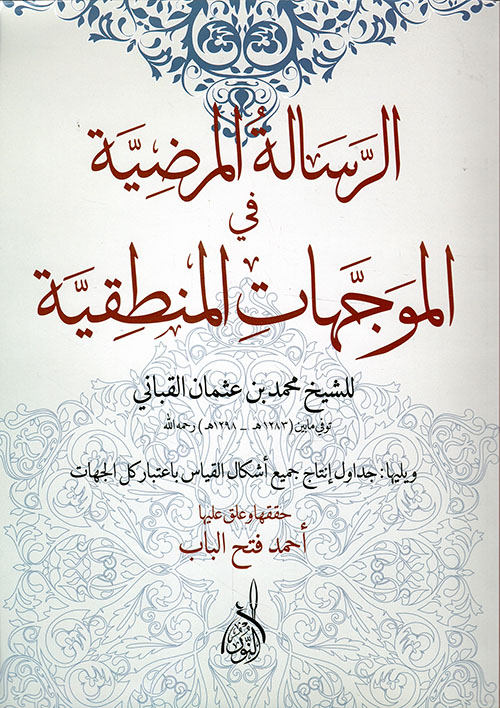 الرَّسَالةُ المرضِيَّة
في
الموَجَّهاتِ المنطقيَّة
للشيخ محمد بن عثمان القباني
توفي مابين (١٢٨٣هـ - ١٢٩٨هـ) رحمه الله
ويليها: جداول إنتاج جميع أشكال القياس باعتبار كل الجهات
حققها وعلق عليها
أحمد فتح الباب
النور